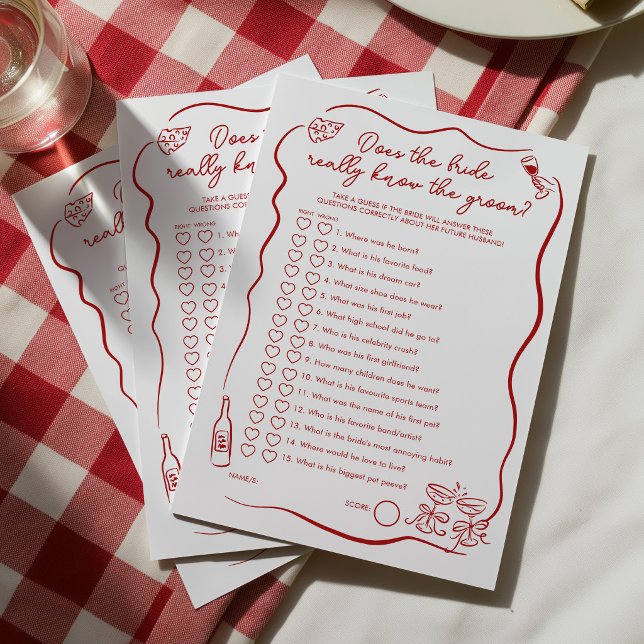 Does the bride
really know the groom?
TAKE A GUESS IF THE BRIDE WILL ANSWER THESE
QUESTIONS CORRECTLY ABOUT HER FUTURE HUSBAND!
RIGHT WRONG
1. Where was he born?
2. What is his favorite food?
3. What is his dream car?
4. What size shoe does he wear?
5. What was his first job?
6. What high school did he go to?
7. Who is his celebrity crush?
8. Who was his first girlfriend?
9. How many children does he want?
10. What is his favourite sports team?
11. What was the name of his first pet?
12. Who is his favorite band/artist?
13. What is the bride's most annoying habit?
14. Where would he love to live?
15. What is his biggest pet peeve?
NAME/S:
SCORE:
Does the
really kno
TAKE A GUESS
QUESTIONS CORR
RIGHT WRONG
1. Wh
2. W
3. W
4.
5.
6.
7.
8.
really
QU
RIGHT WRONG